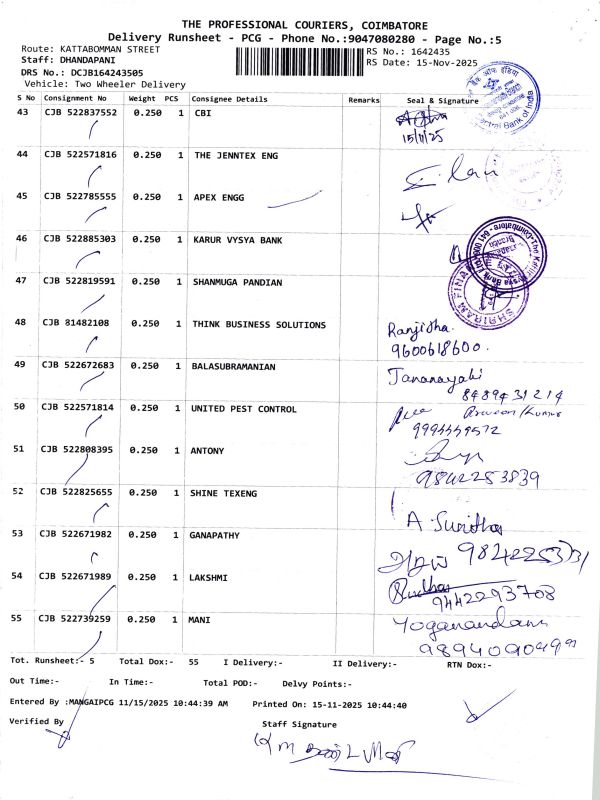 THE PROFESSIONAL COURIERS, COIMBATORE
Delivery Runsheet - PCG - Phone No.:9047080280 - Page No.:5
Route: KATTABOMMAN STREET
RS No.: 1642435
Staff: DHANDAPANI
RS Date: 15-Nov-2025
DRS No.: DCJB164243505
Vehicle: Two Wheeler Delivery
S No Consignment No Weight PCS Consignee Details Remarks Seal & Signature
43 CJB 522837552 0.250 1 CBI
15/11/25
Central Bank of India
44 CJB 522571816 0.250 1 THE JENNTEX ENG
45 CJB 522785555 0.250 1 APEX ENGG
46 CJB 522885303 0.250 1 KARUR VYSYA BANK
47 CJB 522819591 0.250 1 SHANMUGA PANDIAN
SHRIRAM FINA
48 CJB 81482108 0.250 1 THINK BUSINESS SOLUTIONS Ranjitha.
9600618600.
49 CJB 522672683 0.250 1 BALASUBRAMANIAN Jananayaki
8489431214
50 CJB 522571814 0.250 1 UNITED PEST CONTROL
51 CJB 522808395 0.250 1 ANTONY
9842253839
52 CJB 522825655 0.250 1 SHINE TEXENG
A. Suvitha
53 CJB 522671982 0.250 1 GANAPATHY
54 CJB 522671989 0.250 1 LAKSHMI
9442293708
55 CJB 522739259 0.250 1 MANI Yoganandam
Tot. Runsheet:- 5 Total Dox:- 55 I Delivery:- II Delivery:- RTN Dox:-
Out Time:- In Time:- Total POD:- Delvy Points:-
Entered By :MANGAIPCG 11/15/2025 10:44:39 AM Printed On: 15-11-2025 10:44:40
Verified By
Staff Signature